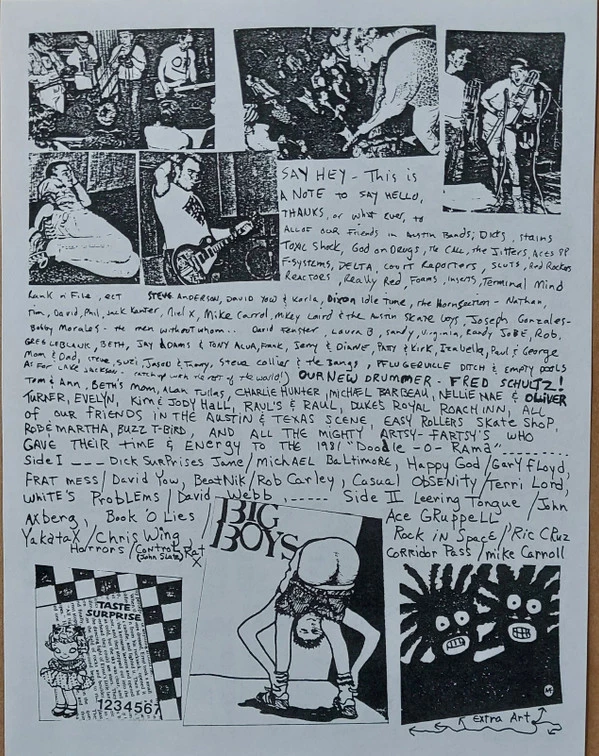 SAY HEY - This is
A NOTE to SAY HELLO,
THANKS, or what ever, to
ALLof OUR Friends in Austin Bands; Dicks, stains
TOXIC Shock, God on Drugs, the CALL, the Jitters, Aces 88
F-Systems, DELTA, court Reporters, SLUTS, Red Rockers
REACTORS, Really Red, Foams, Inserts, Terminal Mind
Rank n' File, ect STEVE ANDERSON, DAVID YOW & Karla, Dixon Idle Time, the HornSection - Nathan,
Tim, David, Phil, Jack Kanter, Piel X, Mike Carrol, Mikey Laird & the Austin Skate boys, Joseph Gonzales-
Bobby Morales - the men without whom.. David Fenster, Laura B, sandy, Virginia, Randy JOBE, Rob,
GREG LOBLAUK, BETH, JAY ADAMS & TONY ALVA, Frank, Jerry & DiANE, PATY & KirK, Izabella, Paul & George
Mom & Dad, steve, suzi, Jason & Tammy, Steve Collier & the Bangs, PFLUGERVILLE DITCH & EMPTY POOLS
AS FOR LAKE JACKSON.. catch up with the rest of the world!) OUR NEW DRUMMER - FRED SCHULTZ!
Tom & Ann, BETH'S MOM, ALAN TULLOS, CHARLIE HUNTER, MICHAEL BARBEAU, NELLIE MAE & OLLIVER
TURNER, EVELYN, KIM & JODY HALL, RAUL'S & RAUL, DUKES ROYAL ROACH INN, ALL
OF OUR FRIENDS IN THE AUSTIN & TEXAS SCENE, EASY ROLLERS SKATE SHOP,
ROB & MARTHA, BUZZ T-BIRD, AND ALL THE MIGHTY ARTSY-FARTSY'S WHO
GAVE THEIR time & ENERGY to THE 1981 "Doodle-O-Rama"
Side I --- DICK SURPRISES Jame / Michael BALTIMORE, Happy God / GARY FLOYD,
FRAT MESS / David Yow, BEATNIK / Rob Carley, Casual ObSENiTy / Terri Lord,
WHITE'S PRoblEMS / David Webb, ----- Side II Leering Tongue / John
Axberg, Book 'O Lies Ace GRuppELL
YakataX / Chris Wing, Rock in Space / Ric CRuz
Horrors / Control Rat X CORRiDOR Pass / mike Carroll
(John Slate)
BIG
BOYS
TASTE
SURPRISE
1234567
Extra Art